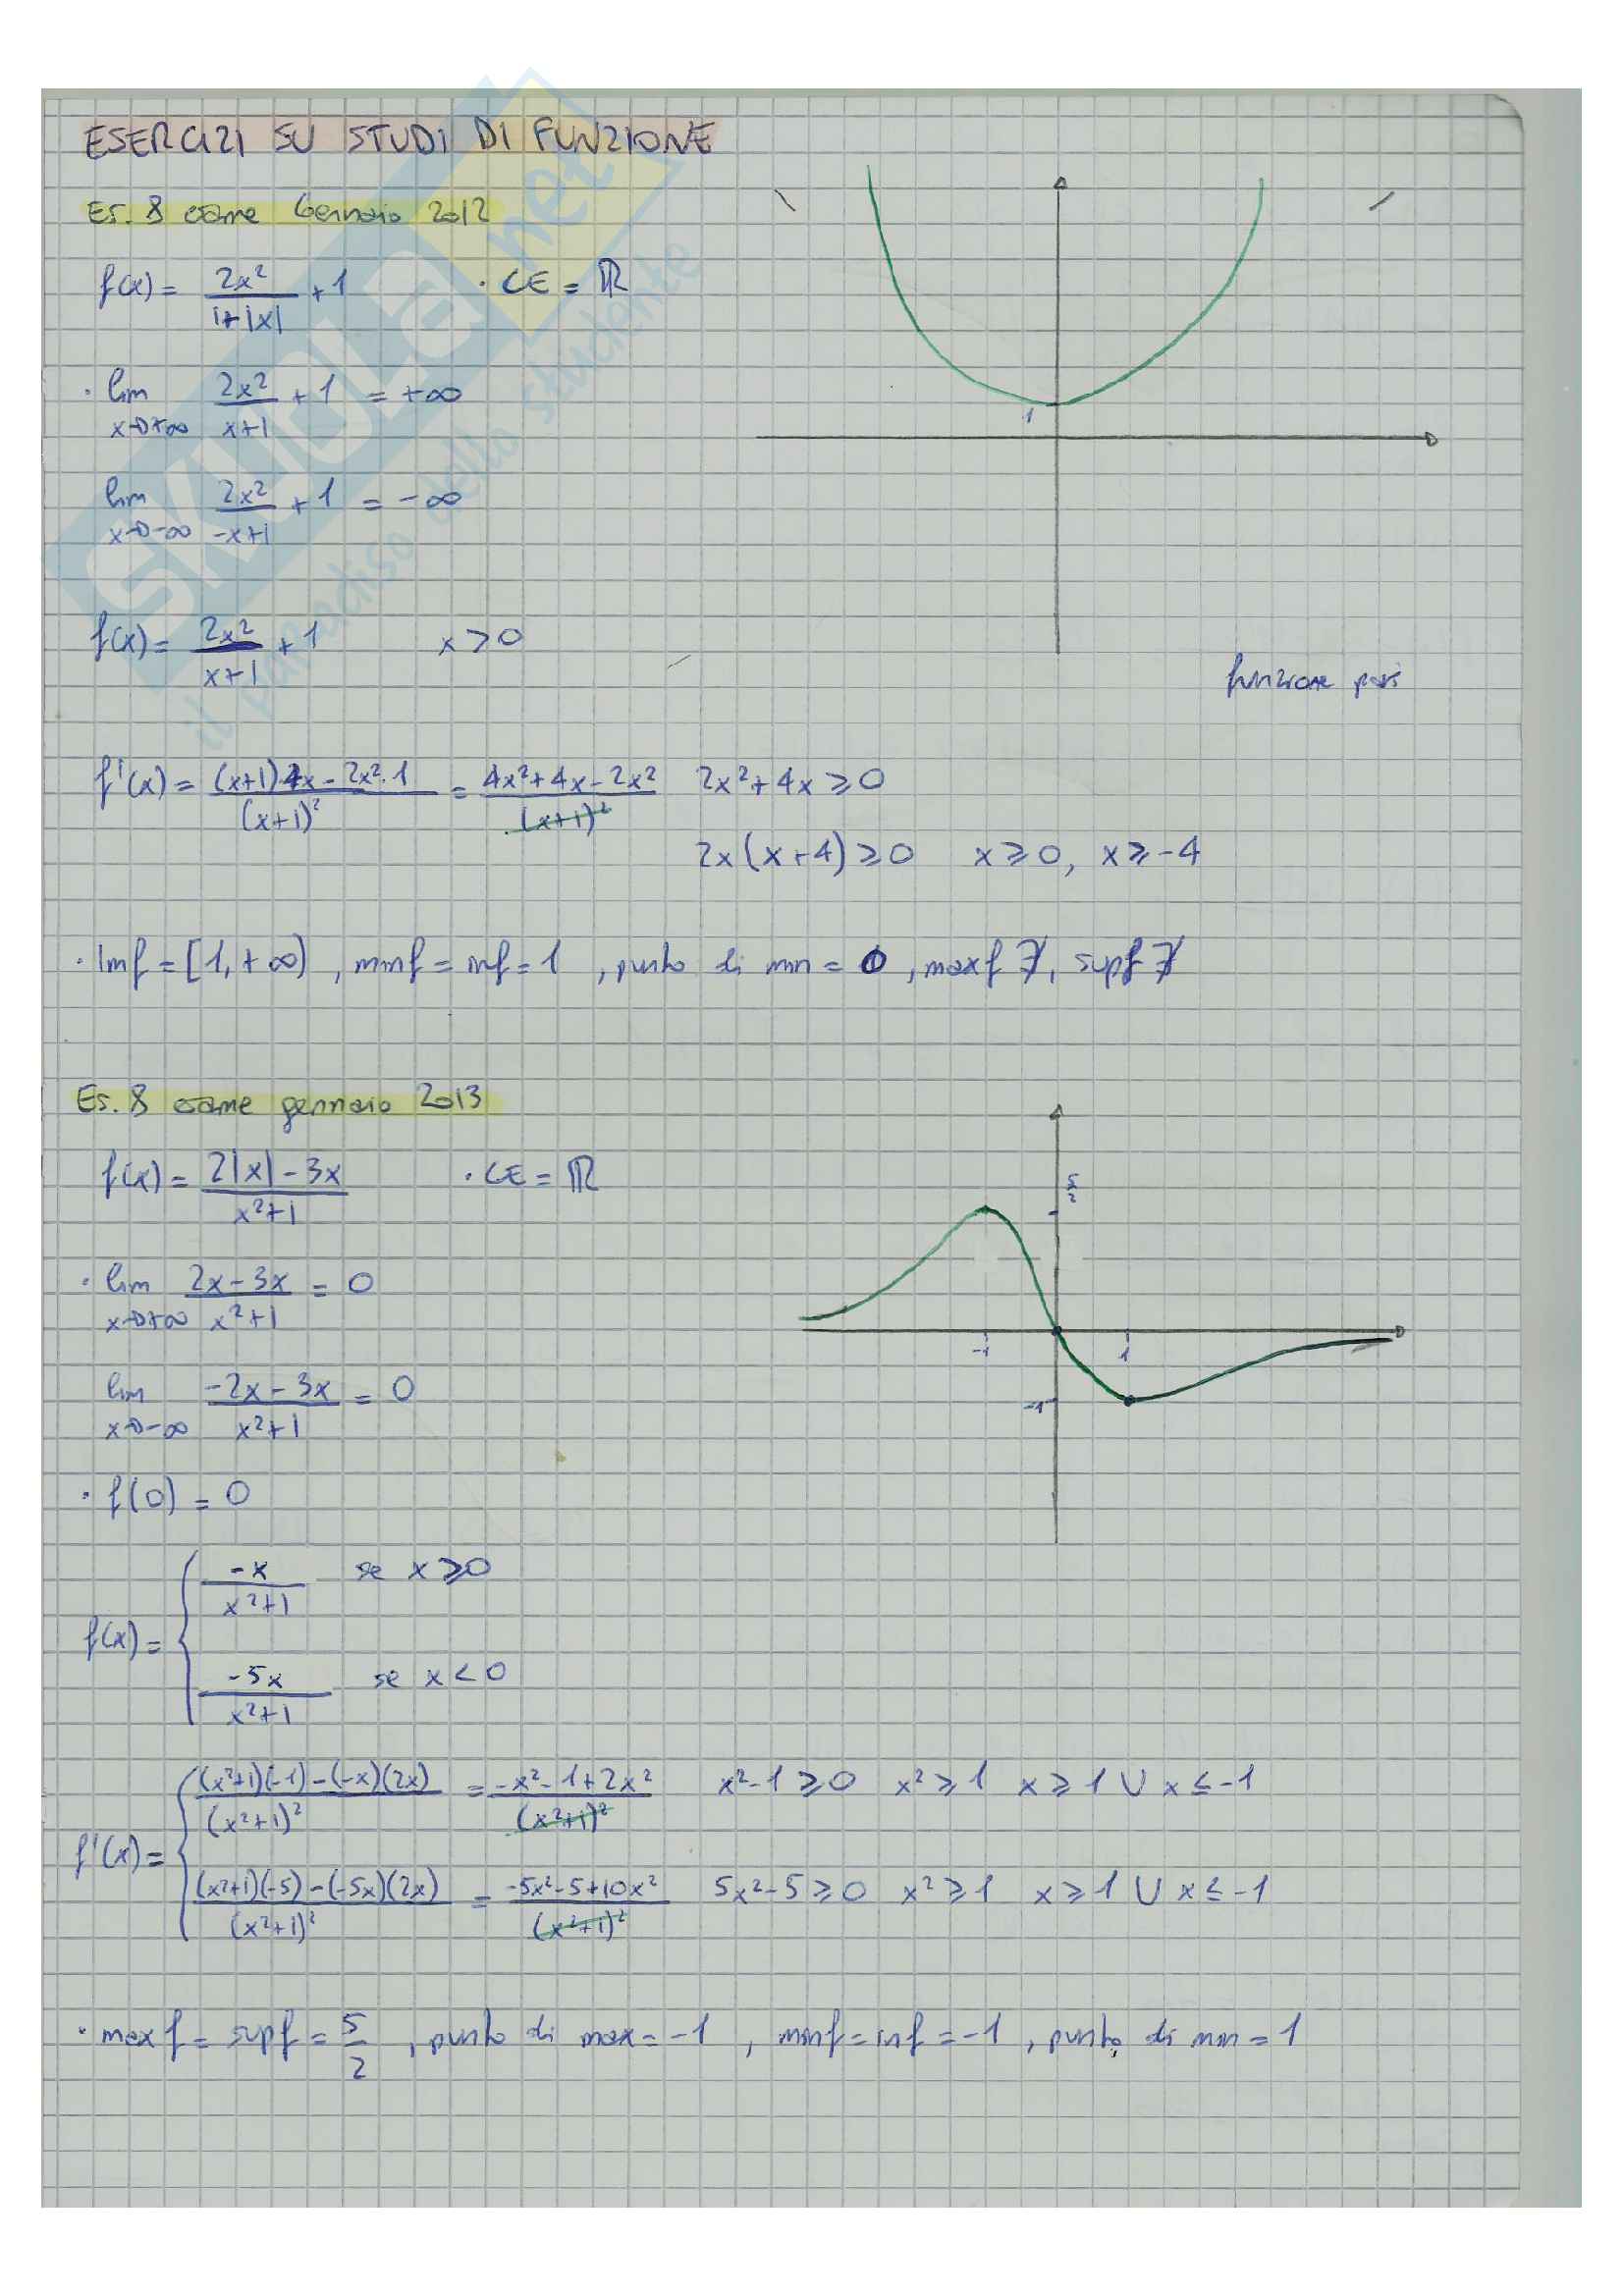 ESERCIZI SU STUDI DI FUNZIONE
Es. 8 esame Gennaio 2012
f(x) = 2x²/(1+|x|) + 1 · CE = ℝ
· lim x→+∞ 2x²/(x+1) + 1 = +∞
lim x→-∞ 2x²/(-x+1) + 1 = -∞
1
f(x) = 2x²/(x+1) + 1 x > 0
funzione pari
f'(x) = ((x+1)4x - 2x²·1)/(x+1)² = (4x²+4x-2x²)/(x+1)² 2x²+4x ≥ 0
2x(x+4) ≥ 0 x ≥ 0, x ≥ -4
· Imf = [1,+∞) , minf = inf = 1 , punto di min = 0 , maxf ∄, supf ∄
Es. 8 esame gennaio 2013
f(x) = (2|x| - 3x)/(x²+1) · CE = ℝ
5/2
· lim x→+∞ (2x-3x)/(x²+1) = 0
-1 1
lim x→-∞ (-2x-3x)/(x²+1) = 0
-1
· f(0) = 0
f(x) = { -x/(x²+1) se x ≥ 0
-5x/(x²+1) se x < 0
f'(x) = { ((x²+1)(-1) - (-x)(2x))/(x²+1)² = (-x²-1+2x²)/(x²+1)² x²-1 ≥ 0 x² ≥ 1 x ≥ 1 ∪ x ≤ -1
((x²+1)(-5) - (-5x)(2x))/(x²+1)² = (-5x²-5+10x²)/(x²+1)² 5x²-5 ≥ 0 x² ≥ 1 x ≥ 1 ∪ x ≤ -1
· max f = supf = 5/2 , punto di max = -1 , minf = inf = -1 , punto di min = 1
SKUOLA.net
il paradiso dello studente